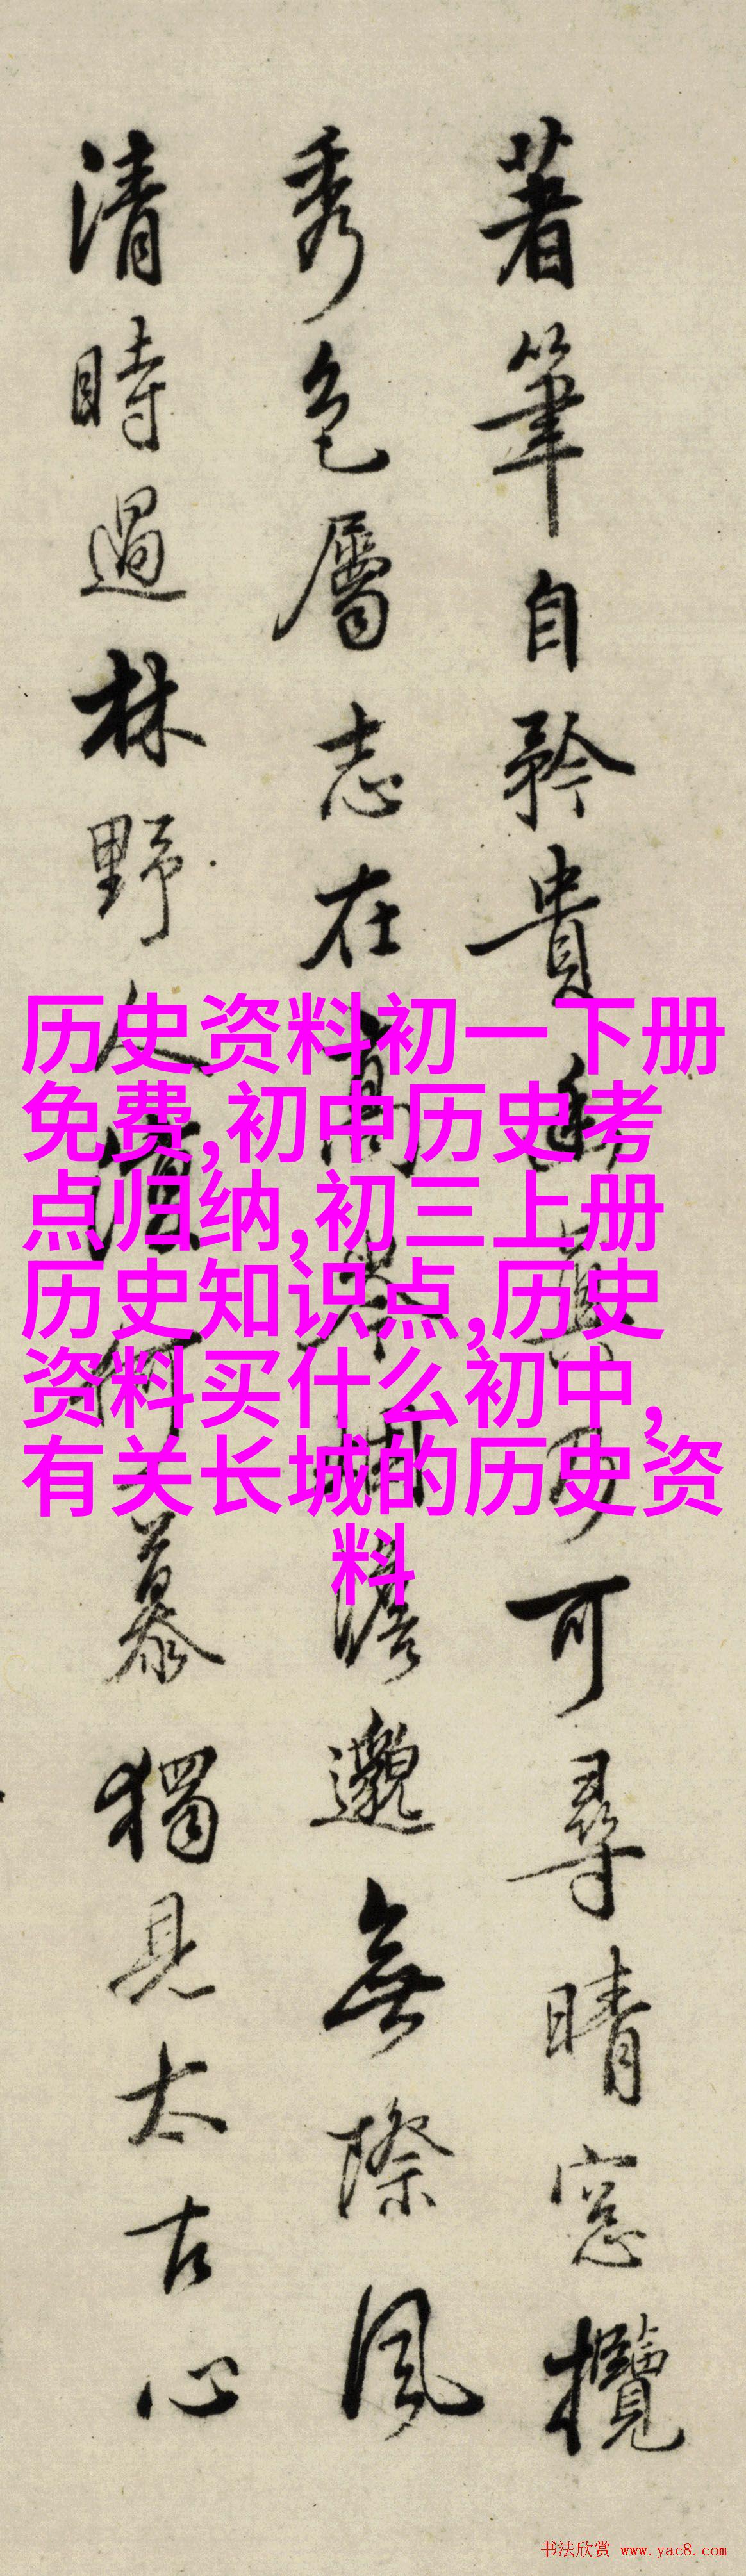 著筆自矜貴乃可尋晴窓攬
秀色屬志在高岑澹邈無際風
清時過林野人何慕獨見太古心
历史资料初一下册
免费,初中历史考
点归纳,初三上册
历史知识点,历史
资料买什么初中,
有关长城的历史资
料
书法欣赏 www.yac8.com